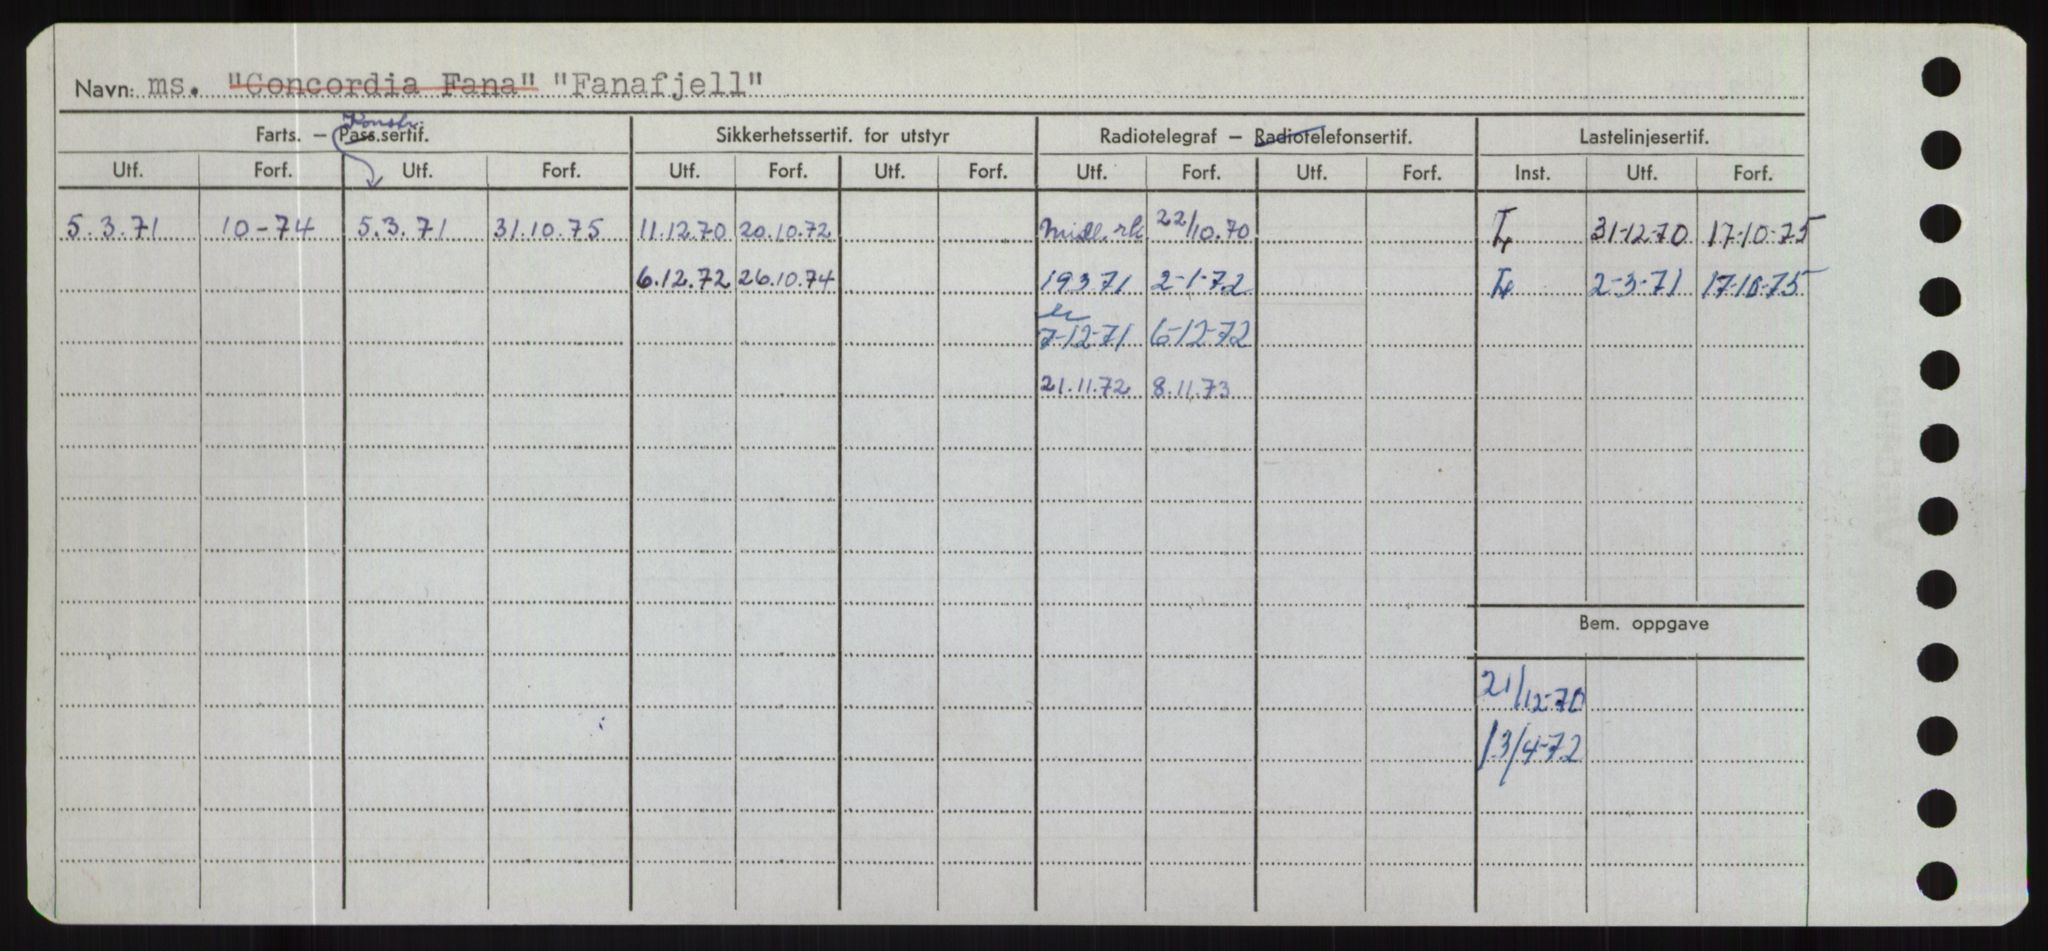 Navn: ms. "Concordia Fana" "Fanafjell"
Konstr.
Farts. – Pass.sertif. Sikkerhetssertif. for utstyr Radiotelegraf – Radiotelefonsertif. Lastelinjesertif.
Utf. Forf. Utf. Forf. Utf. Forf. Utf. Forf. Utf. Forf. Utf. Forf. Inst. Utf. Forf.
5.3.71 10-74 5.3.71 31.10.75 11.12.70 20.10.72 22/10.70 31-12-70 17-10-75
6.12.72 26.10.74 19.3.71 2-1-72 2-3-71 17-10-75
7-12-71 6-12-72
21.11.72 8.11.73
Bem. oppgave
21/12-70
13/4-72